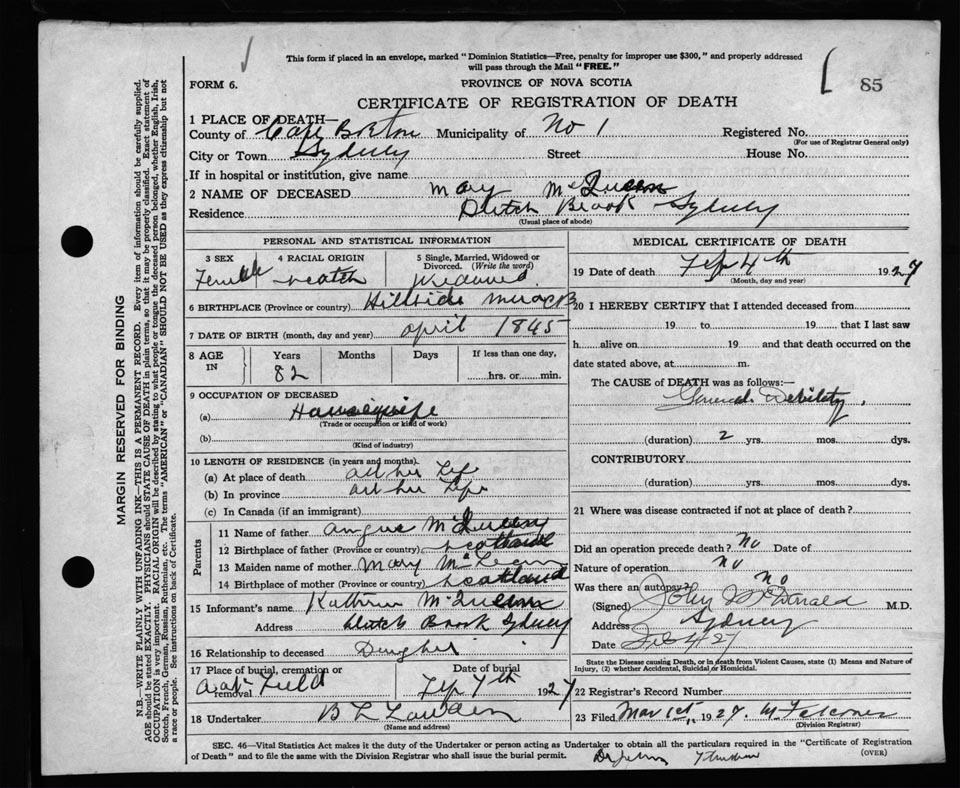 This form if placed in an envelope, marked "Dominion Statistics—Free, penalty for improper use $300," and properly addressed
will pass through the Mail "FREE."
85
FORM 6.
PROVINCE OF NOVA SCOTIA
CERTIFICATE OF REGISTRATION OF DEATH
1 PLACE OF DEATH—
County of Cape Breton Municipality of No 1 Registered No.
(For use of Registrar General only)
City or Town Sydney Street House No.
If in hospital or institution, give name
2 NAME OF DECEASED Mary McQueen
Residence Dutch Brook Sydney
(Usual place of abode)
PERSONAL AND STATISTICAL INFORMATION
3 SEX 4 RACIAL ORIGIN 5 Single, Married, Widowed or Divorced. (Write the word)
Female Scotch Widowed
6 BIRTHPLACE (Province or country) Hillside Mira CB
7 DATE OF BIRTH (month, day and year) April 1845
8 AGE IN Years Months Days If less than one day,
82 hrs. or min.
9 OCCUPATION OF DECEASED
(a) Housewife
(Trade or occupation or kind of work)
(b)
(Kind of industry)
10 LENGTH OF RESIDENCE (in years and months)
(a) At place of death all her Life
(b) In province all her Life
(c) In Canada (if an immigrant)
Parents
11 Name of father Angus McQueen
12 Birthplace of father (Province or country) Scotland
13 Maiden name of mother Mary McLean
14 Birthplace of mother (Province or country) Scotland
15 Informant's name McQueen
Address Dutch Brook Sydney
16 Relationship to deceased
17 Place of burial, cremation or removal Date of burial
Field Feb 7th 1927
18 Undertaker B L
(Name and address)
MEDICAL CERTIFICATE OF DEATH
19 Date of death Feb 4th 1927
(Month, day and year)
20 I HEREBY CERTIFY that I attended deceased from
19 to 19 that I last saw
h alive on 19 and that death occurred on the
date stated above, at m.
The CAUSE of DEATH was as follows:—
General Debility
(duration) 2 yrs. mos. dys.
CONTRIBUTORY
(duration) yrs. mos. dys.
21 Where was disease contracted if not at place of death?
Did an operation precede death? No Date of
Nature of operation No
Was there an autopsy? No
(Signed) McDonald M.D.
Address Sydney
Date Feb 4/27
State the Disease causing Death, or in death from Violent Causes, state (1) Means and Nature of
Injury, (2) whether Accidental, Suicidal or Homicidal.
22 Registrar's Record Number
23 Filed Mar 1st, 1927.
(Division Registrar)
SEC. 46—Vital Statistics Act makes it the duty of the Undertaker or person acting as Undertaker to obtain all the particulars required in the "Certificate of Registration
of Death" and to file the same with the Division Registrar who shall issue the burial permit. (OVER)
MARGIN RESERVED FOR BINDING
N.B.—WRITE PLAINLY WITH UNFADING INK—THIS IS A PERMANENT RECORD. Every item of information should be carefully supplied.
AGE should be stated EXACTLY. PHYSICIANS should STATE CAUSE OF DEATH in plain terms, so that it may be properly classified. Exact statement of
OCCUPATION is very important. RACIAL ORIGIN will be described by stating to what people or tongue the deceased person belonged, whether English, Irish,
Scotch, French, German, Russian, Ruthenian, etc. The terms "AMERICAN" or "CANADIAN" SHOULD NOT BE USED as they express citizenship but not
a race or people. See instructions on back of Certificate.